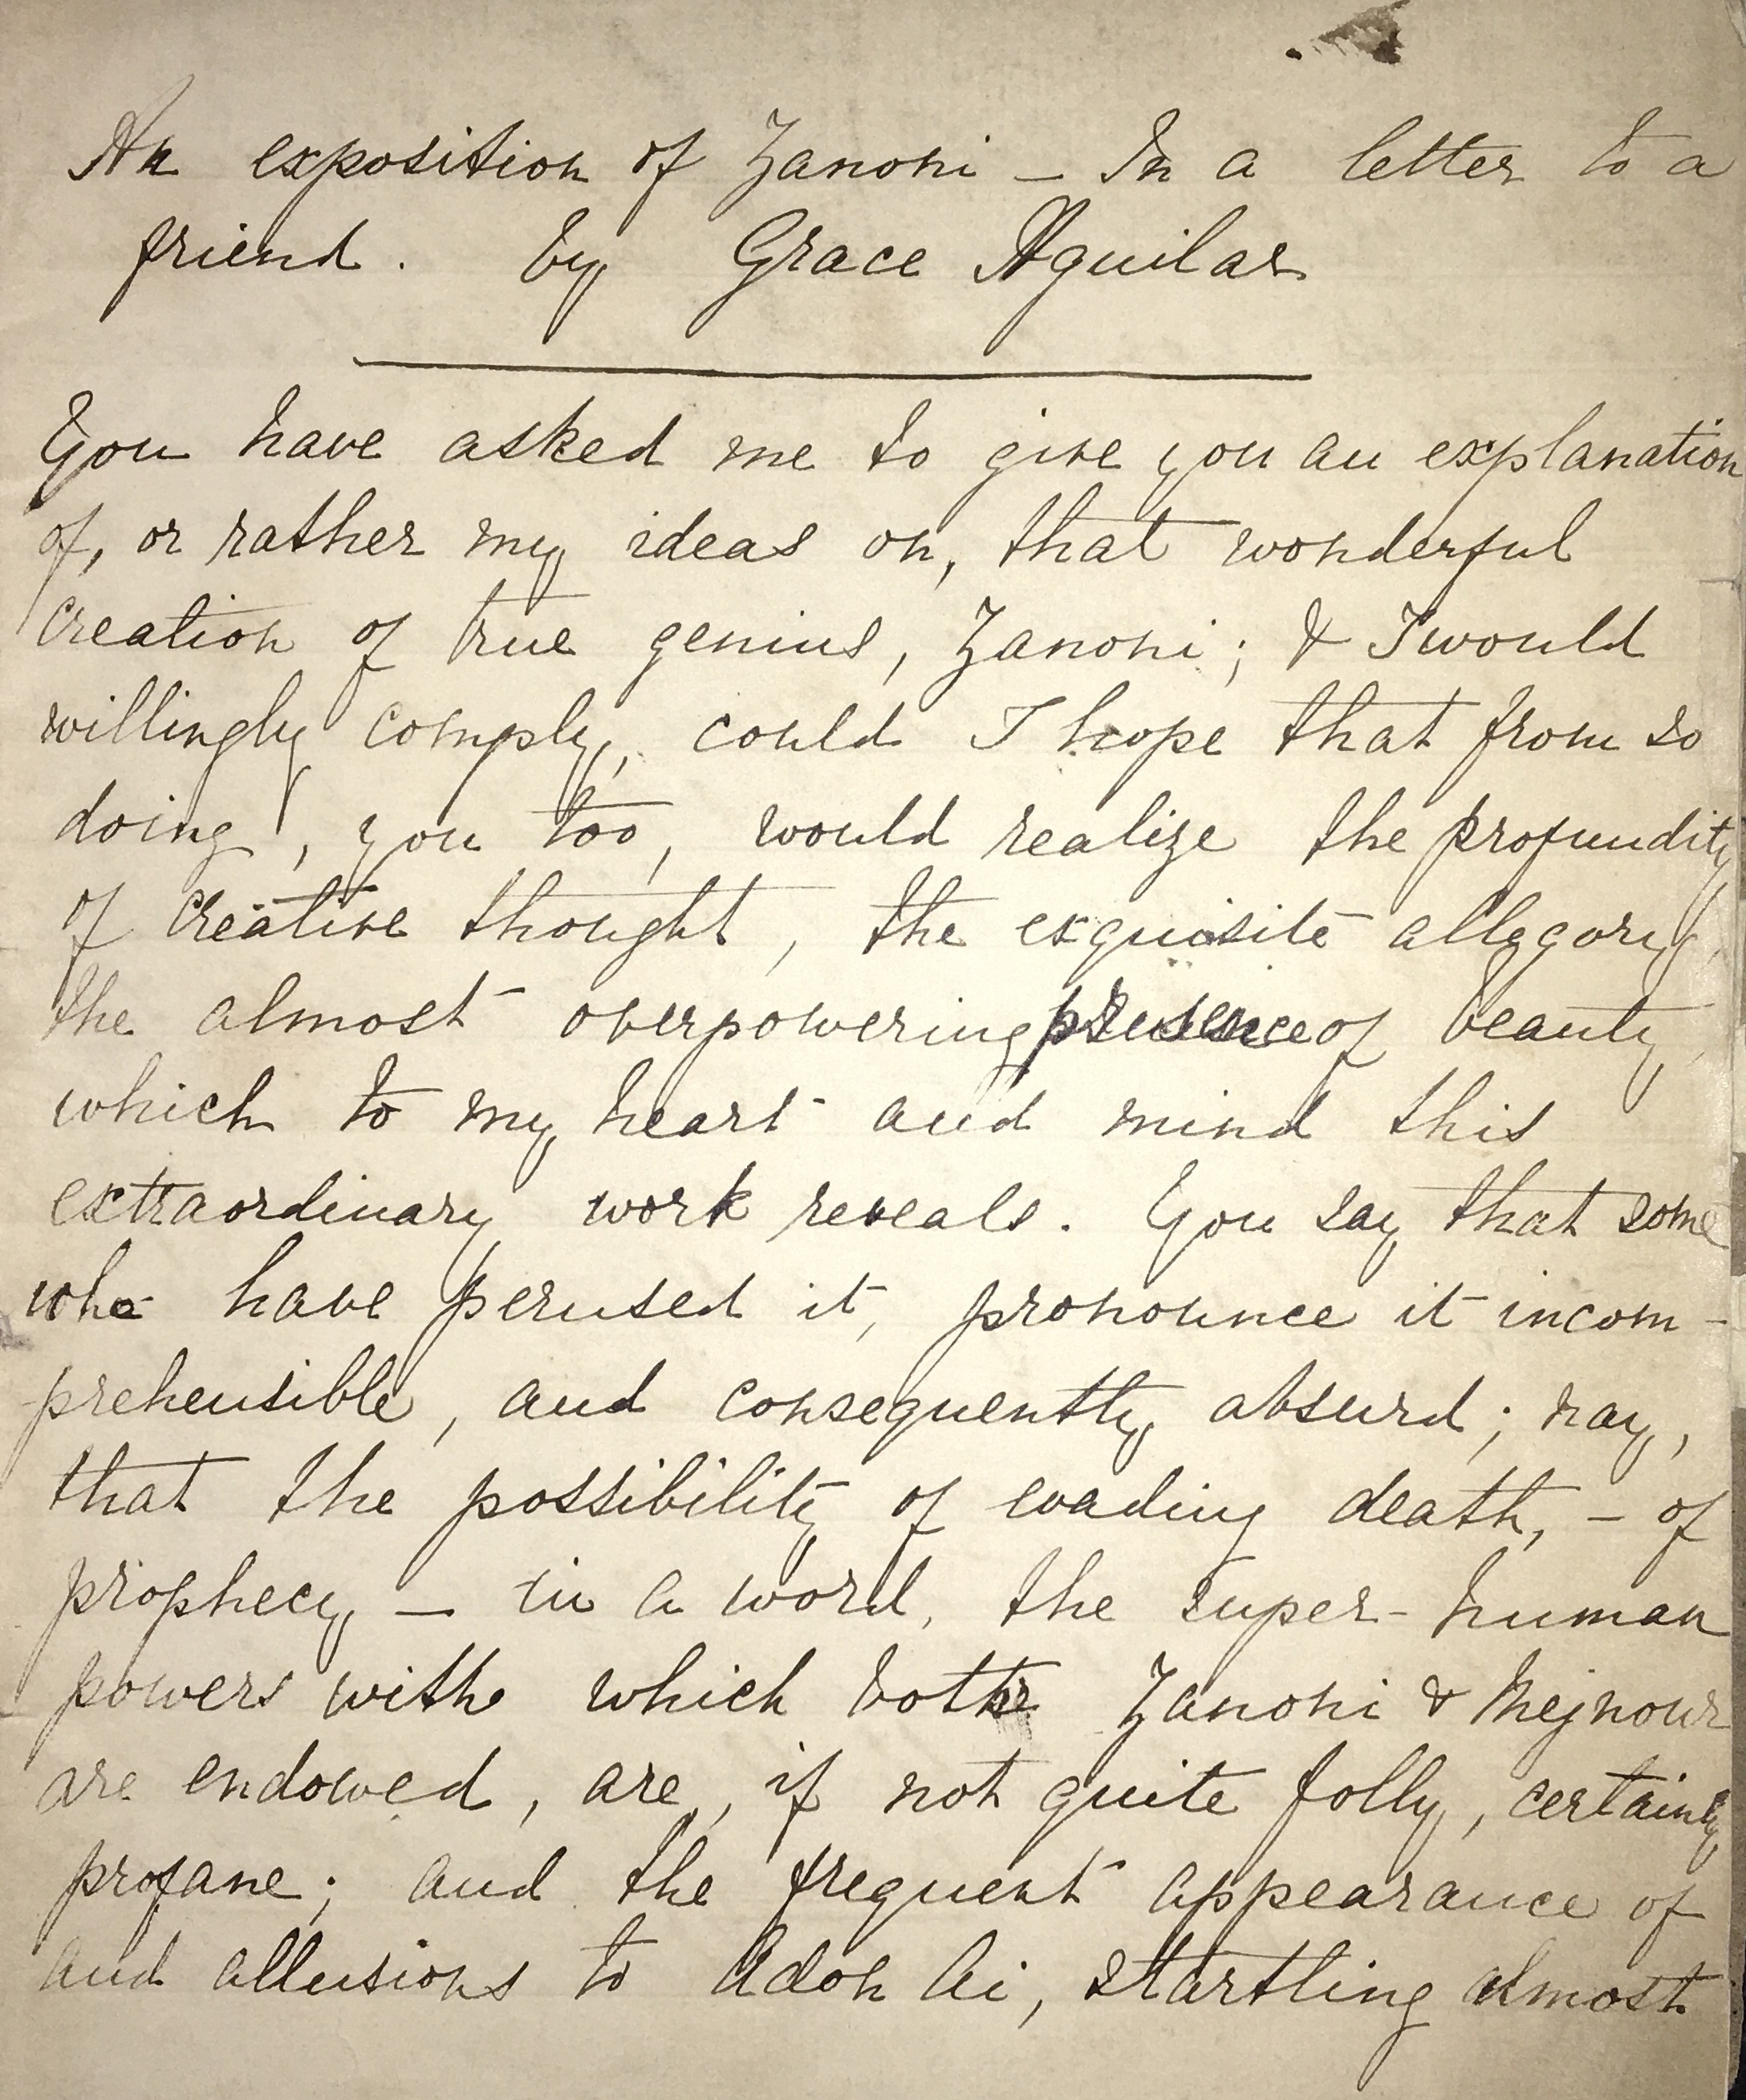 An exposition of Zanoni – In a letter to a
friend. by Grace Aguilar
You have asked me to give you an explanation
of, or rather my ideas on, that wonderful
creation of true genius, Zanoni; & I would
willingly comply, could I hope that from so
doing, you too, would realize the profundity
of creative thought, the exquisite allegory,
the almost overpowering presence of beauty,
which to my heart and mind this
extraordinary work reveals. You say that some
who have perused it, pronounce it incom-
prehensible, and consequently absurd; nay,
that the possibility of evading death, – of
prophecy – in a word, the super-human
powers with which both Zanoni & Mejnour
are endowed, are, if not quite folly, certainly
profane; and the frequent appearance of
and allusions to Adon Ai, startling almost